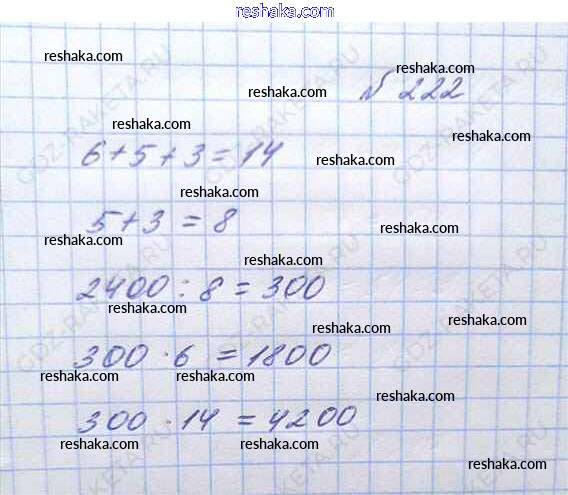 reshaka.com
reshaka.com
reshaka.com
№ 222
reshaka.com
reshaka.com
reshaka.com
6+5+3=14
reshaka.com
reshaka.com
5+3=8
reshaka.com
reshaka.com
reshaka.com
2400:8=300
reshaka.com
reshaka.com
300·6=1800
reshaka.com
reshaka.com
reshaka.com
300·14=4200
reshaka.com
reshaka.com
reshaka.com
reshaka.com
GDZ-RAKETA.RU
GDZ-RAKETA.RU
GDZ-RAKETA.RU
GDZ-RAKETA.RU